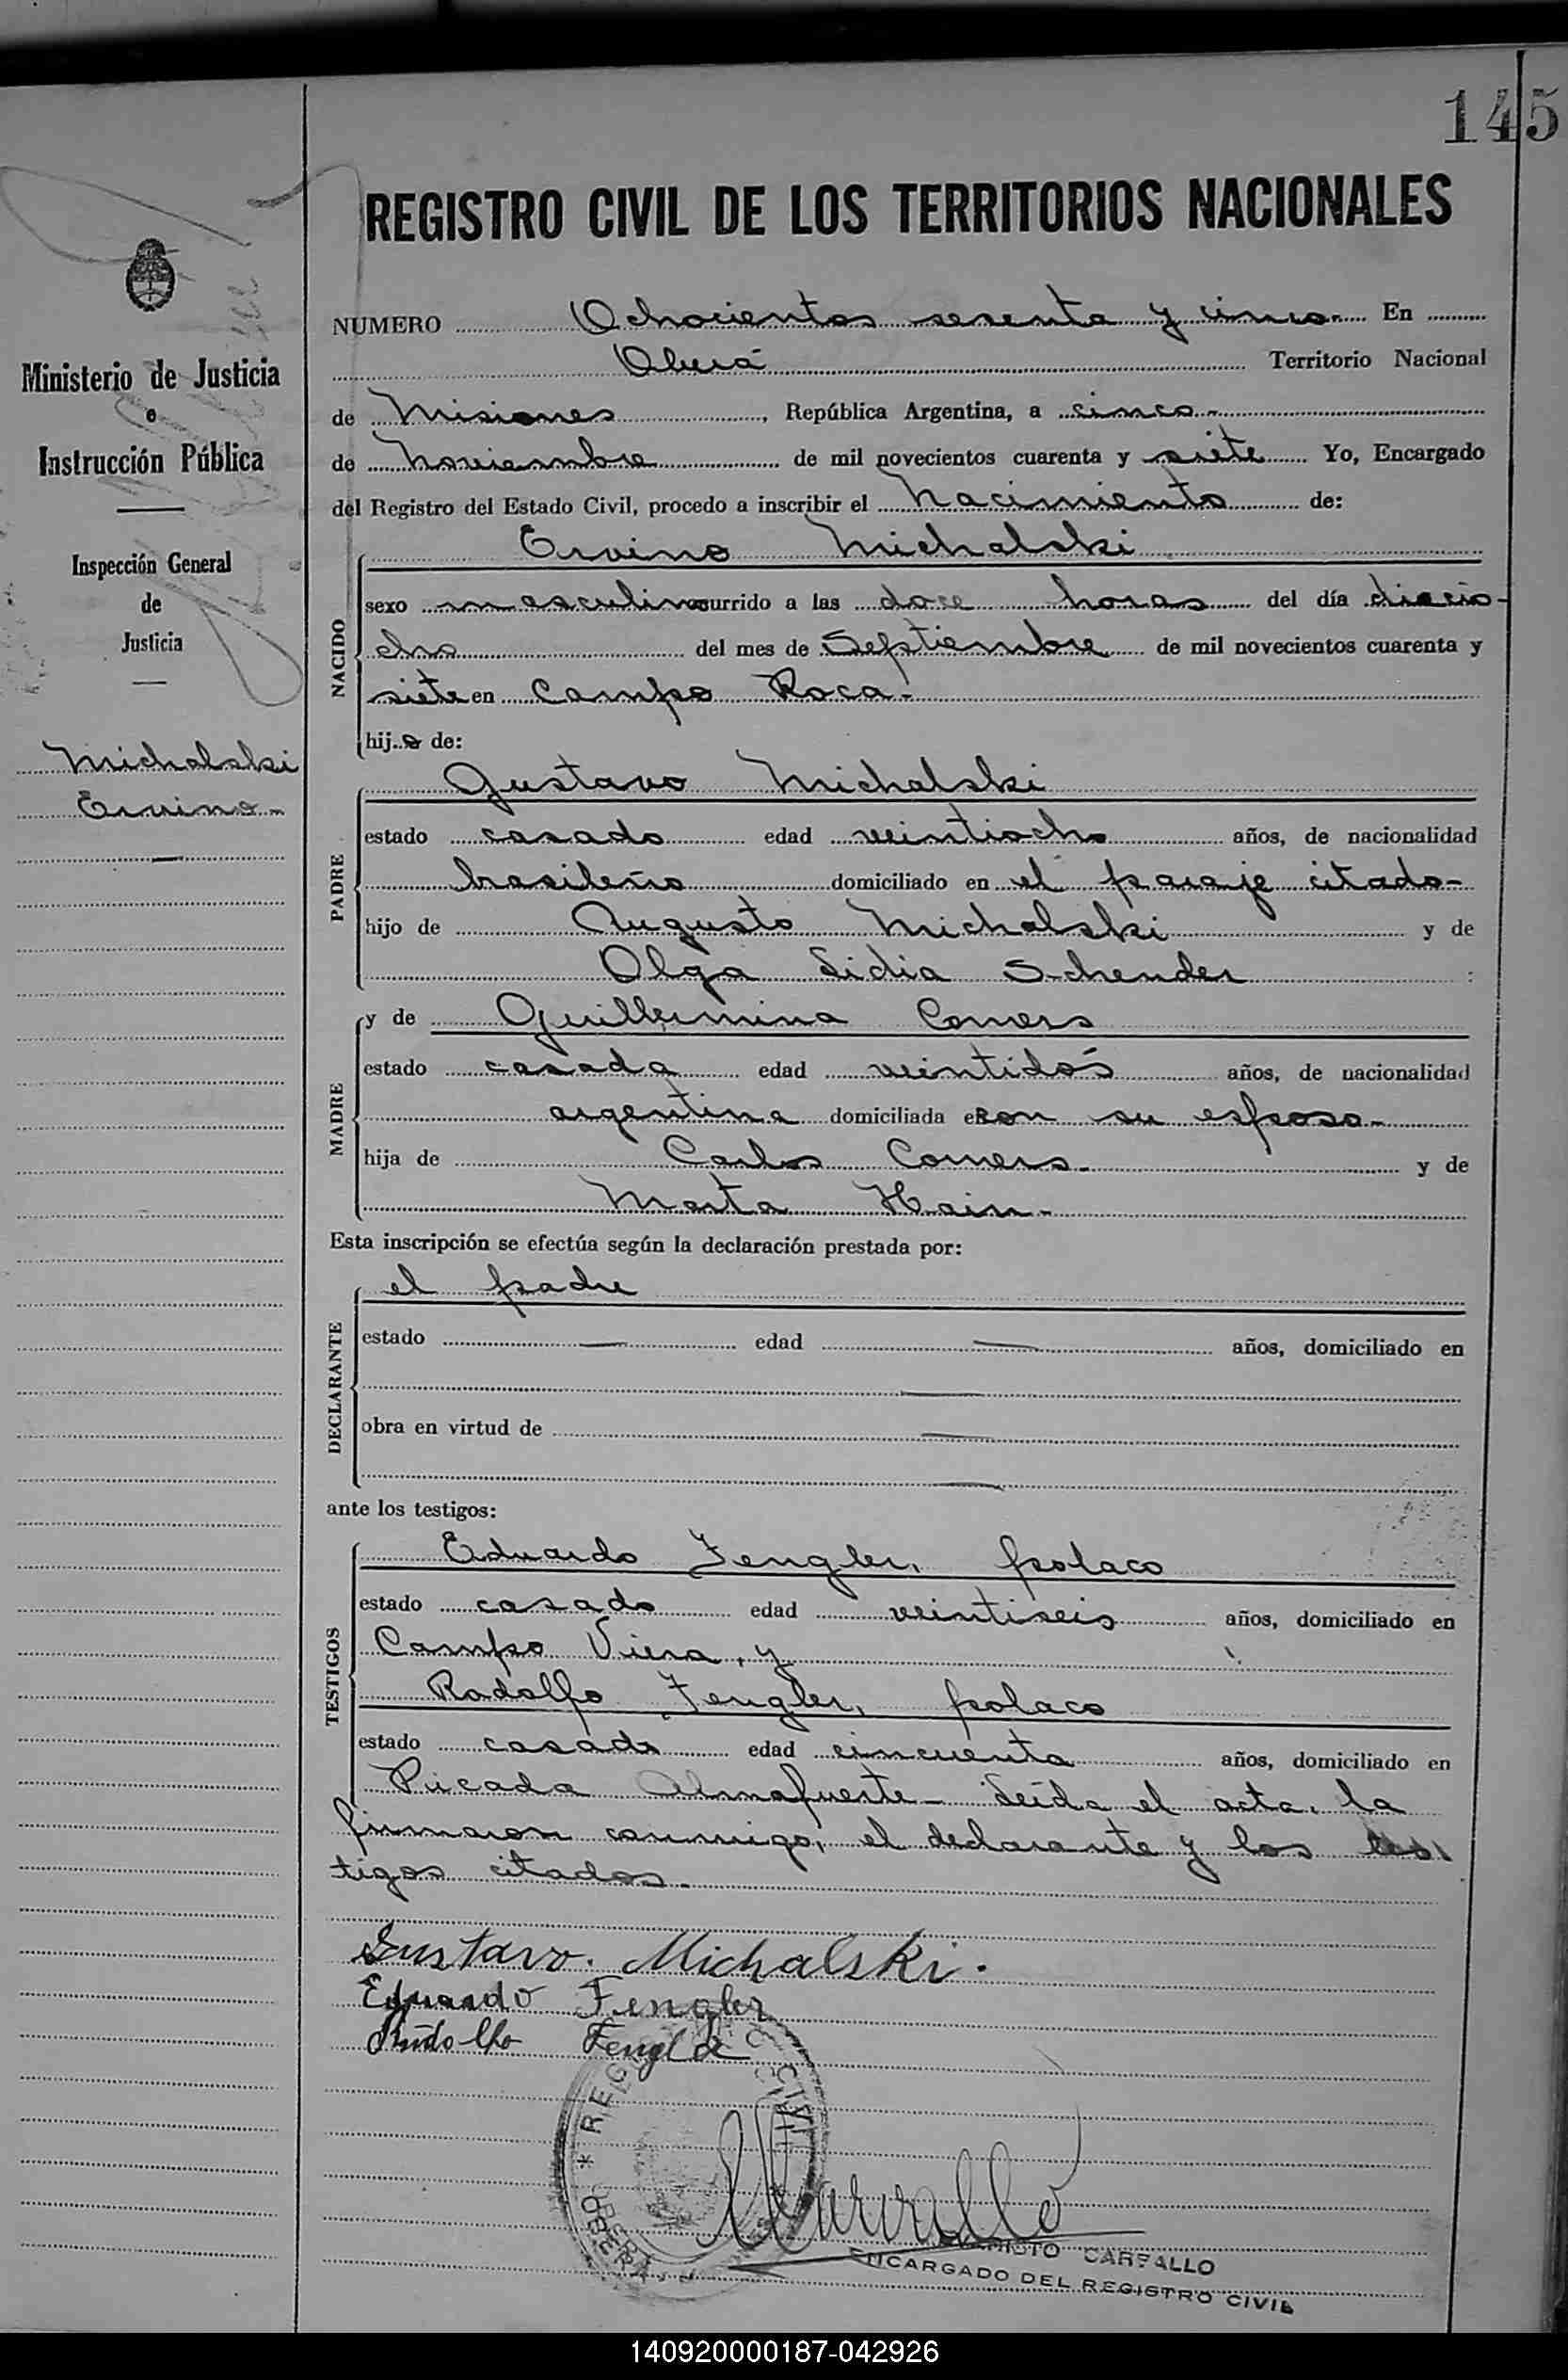 145
REGISTRO CIVIL DE LOS TERRITORIOS NACIONALES
Ministerio de Justicia
e
Instrucción Pública
Inspección General
de
Justicia
Michalski
Ervino
NUMERO Ochocientos sesenta y cinco. En
Oberá Territorio Nacional
de Misiones, República Argentina, a cinco
de Noviembre de mil novecientos cuarenta y siete Yo, Encargado
del Registro del Estado Civil, procedo a inscribir el Nacimiento de:
Ervino Michalski
NACIDO
sexo masculino ocurrido a las doce horas del día diecio-
cho del mes de Septiembre de mil novecientos cuarenta y
siete en Campo Roca.
hijo de:
Gustavo Michalski
PADRE
estado casado edad veintiocho años, de nacionalidad
brasileño domiciliado en el paraje citado-
hijo de Augusto Michalski y de
Olga Lidia Schender
MADRE
y de Guillermina Comers
estado casada edad veintidós años, de nacionalidad
argentina domiciliada con su esposo-
hija de Carlos Comers- y de
Marta Hain-
Esta inscripción se efectúa según la declaración prestada por:
el padre
DECLARANTE
estado — edad — años, domiciliado en
obra en virtud de —
ante los testigos:
TESTIGOS
Eduardo Fengler, polaco
estado casado edad veintiseis años, domiciliado en
Campo Viera, y
Rodolfo Fengler, polaco
estado casado edad cincuenta años, domiciliado en
Picada Almafuerte- Leída el acta, la
firmaron conmigo, el declarante y los tes
tigos citados.
Gustavo. Michalski.
Eduardo Fengler
Rudolho Fengler
REG CIVIL
OBERA
CARBALLO
ENCARGADO DEL REGISTRO CIVIL
140920000187-042926